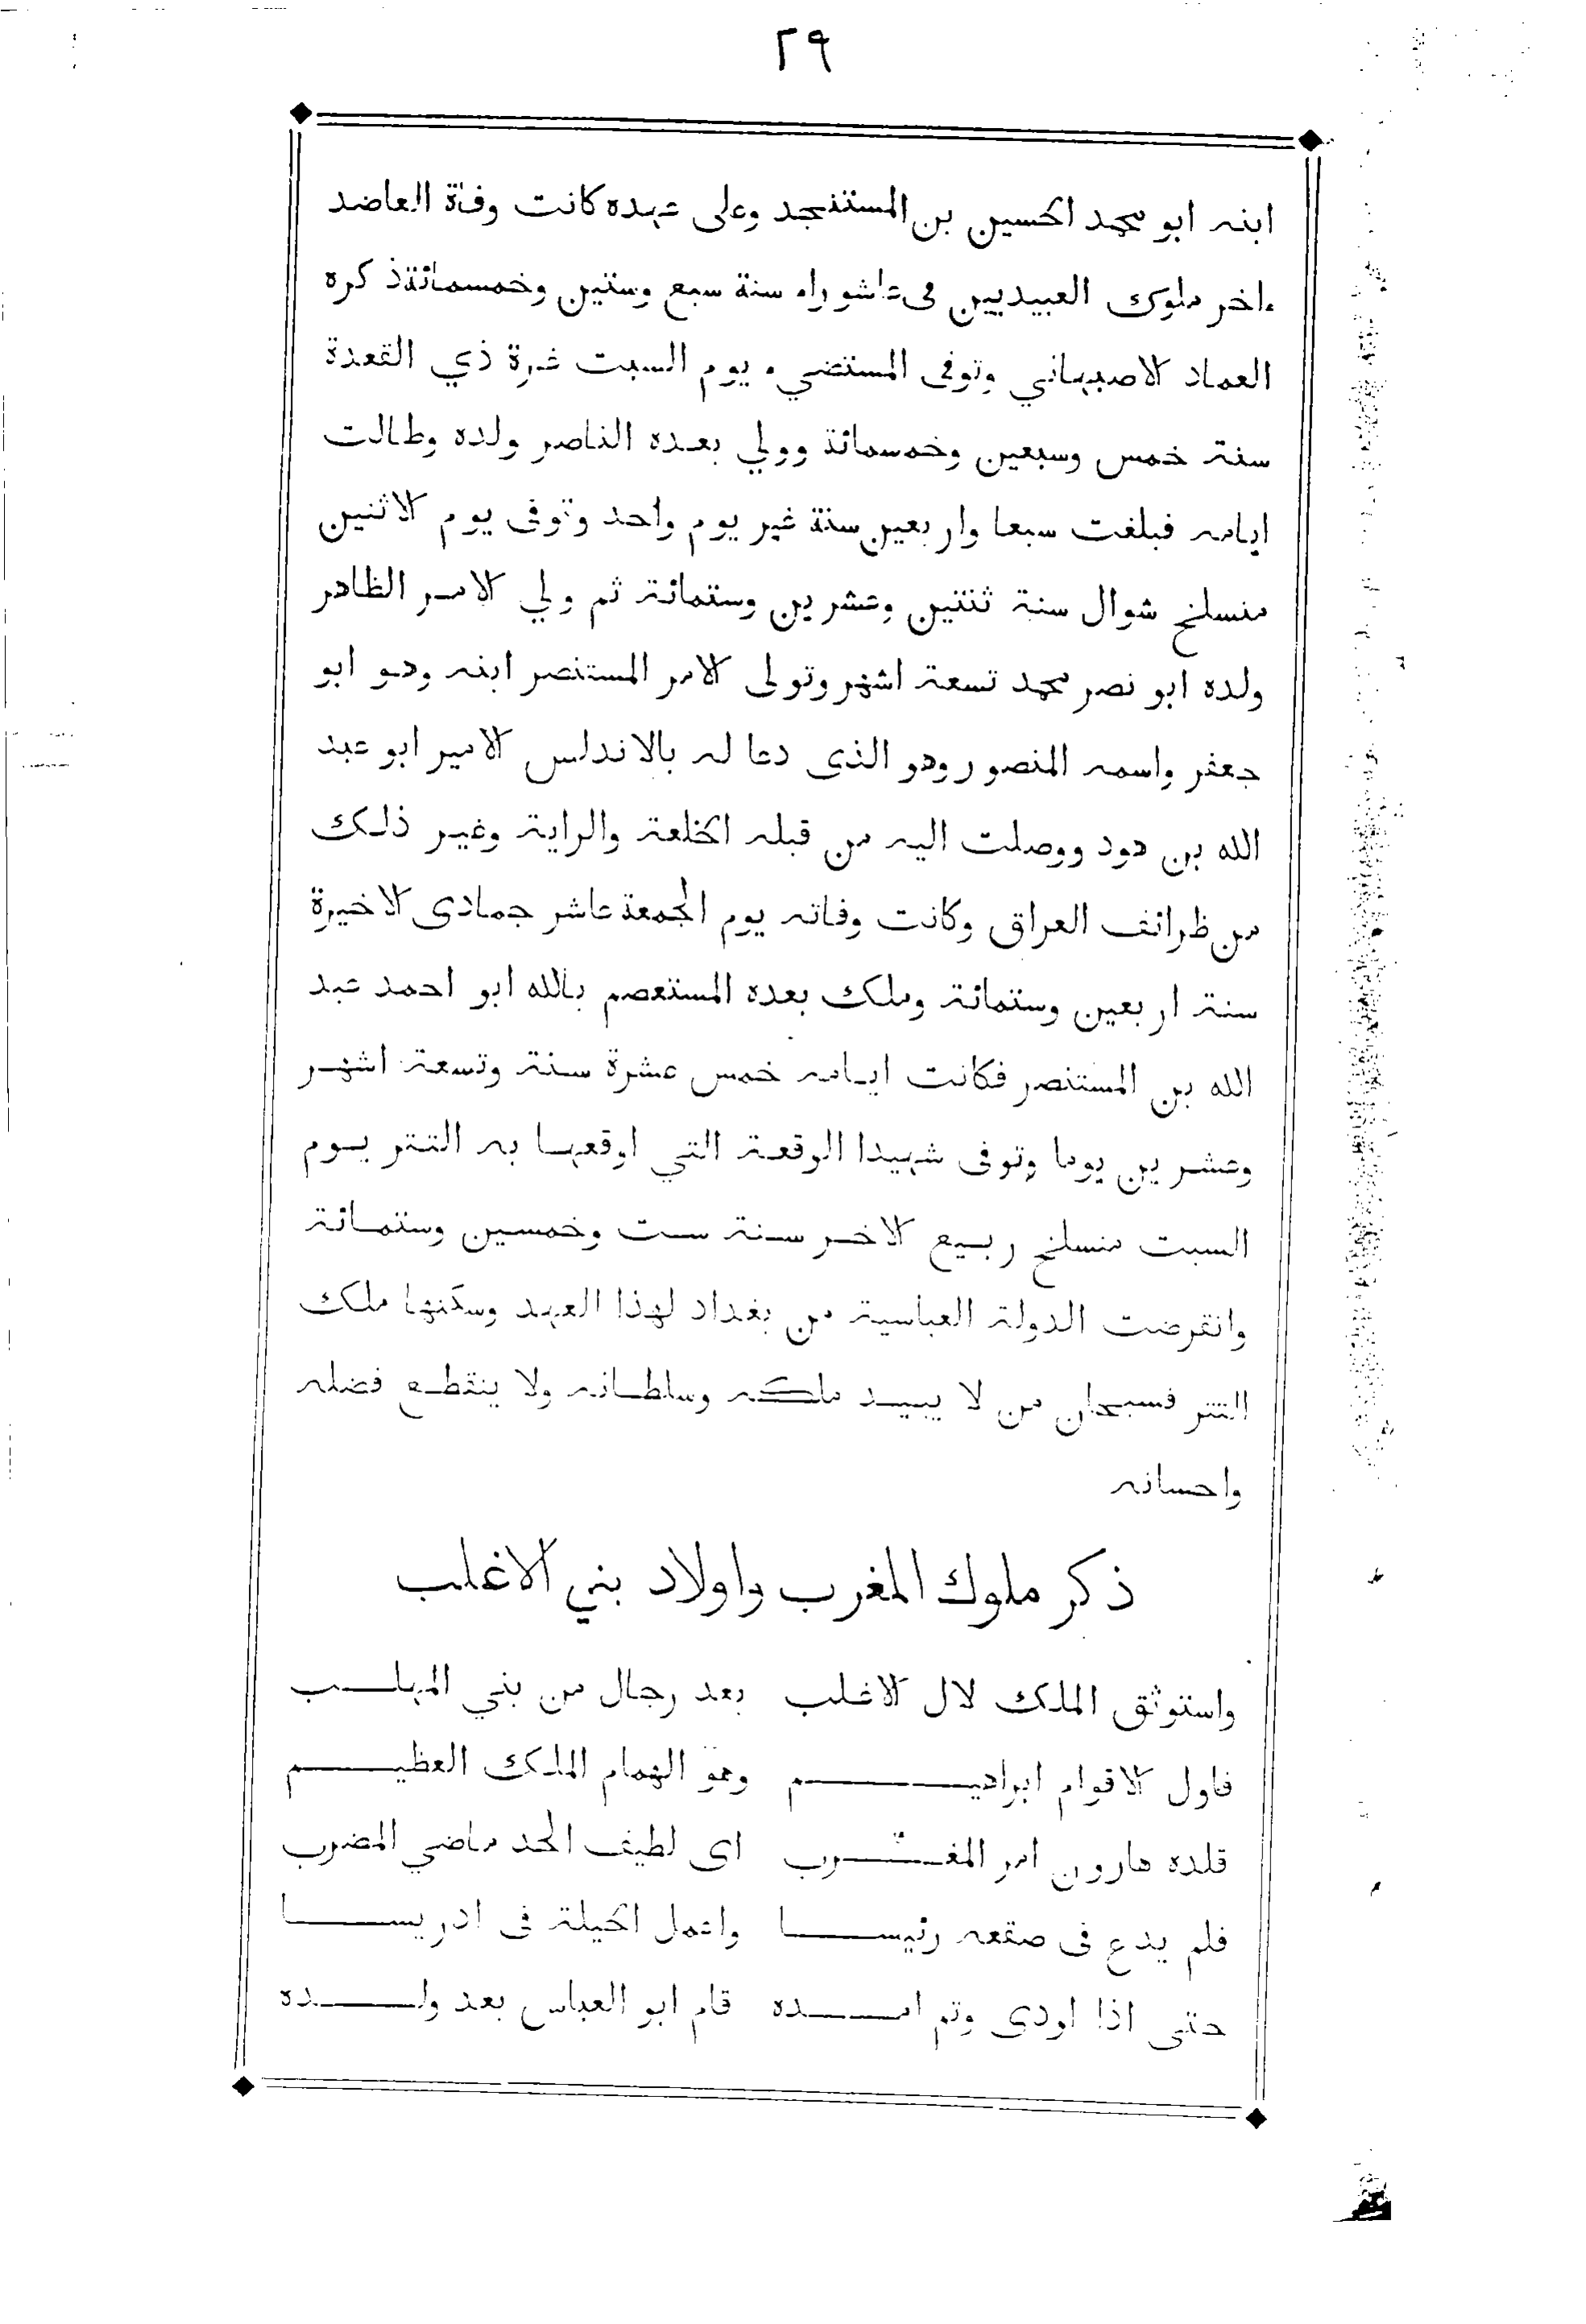 ٢٩
ابنه ابو محمد الحسين بن المستنجد وعلى عهده كانت وفاة العاضد
ءاخر ملوك العبيديين فى عاشوراء سنة سبع وستين وخمسمائة ذكره
العماد الاصبهاني وتوفى المستضيء يوم السبت غرة ذي القعدة
سنة خمس وسبعين وخمسمائة وولي بعده الناصر ولده وطالت
ايامه فبلغت سبعا واربعين سنة غير يوم واحد وتوفى يوم الاثنين
منسلخ شوال سنة ثنتين وعشرين وستمائة ثم ولي الامر الظاهر
ولده ابو نصر محمد تسعة اشهر وتولى الامر المستنصر ابنه وهو ابو
جعفر واسمه المنصور وهو الذى دعا له بالاندلس الامير ابو عبد
الله بن هود ووصلت اليه من قبله الخلعة والراية وغير ذلك
من ظرائف العراق وكانت وفاته يوم الجمعة عاشر جمادى الاخيرة
سنة اربعين وستمائة وملك بعده المستعصم بالله ابو احمد عبد
الله بن المستنصر فكانت ايامه خمس عشرة سنة وتسعة اشهر
وعشرين يوما وتوفى شهيدا الوقعة التي اوقعها به التتر يوم
السبت منسلخ ربيع الاخر سنة ست وخمسين وستمائة
وانقرضت الدولة العباسية من بغداد لهذا العهد وسكنها ملك
التتر فسبحان من لا يبيد ملكه وسلطانه ولا ينقطع فضله
واحسانه
ذكر ملوك المغرب واولاد بني الاغلب
واستوثق الملك لال الاغلب بعد رجال من بني المهلب
فاول الاقوام ابراهيم وهو الهمام الملك العظيم
قلده هارون امر المغرب اى لطيف الحد ماضي المضرب
فلم يدع فى صقعه رئيسا واعمل الحيلة فى ادريسا
حتى اذا اودى وتم امده قام ابو العباس بعد ولده